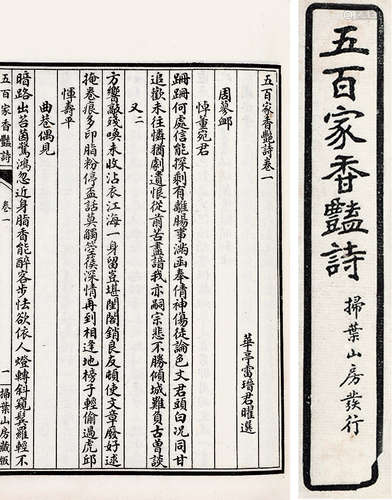 五百家香豔詩
掃葉山房發行
五百家香豔詩卷一
華亭雷瑨君曜選
周蓼卹
悼董宛君
珊珊何處信能探剩有離腸事滿函奉倩神傷徒論色文君頭白况同甘
追歡未往憐猶劇遺恨從前苦盡諳我亦嗣宗悲不勝傾城難負古曾談
又二
方響敲殘喚未收沾衣江海一身留豈堪閨閣銷良友頓使文章廢好逑
掩卷痕多印脂粉停盃話莫觸箜篌深情再到相逢地榜子輕偷過虎邱
惲壽平
曲巷偶見
暗路出苔茵驚鴻忽近身脂香能醉客步怯欲依人燈轉斜窺鬢羅輕不
五百家香豔詩
卷一
一
掃葉山房藏版